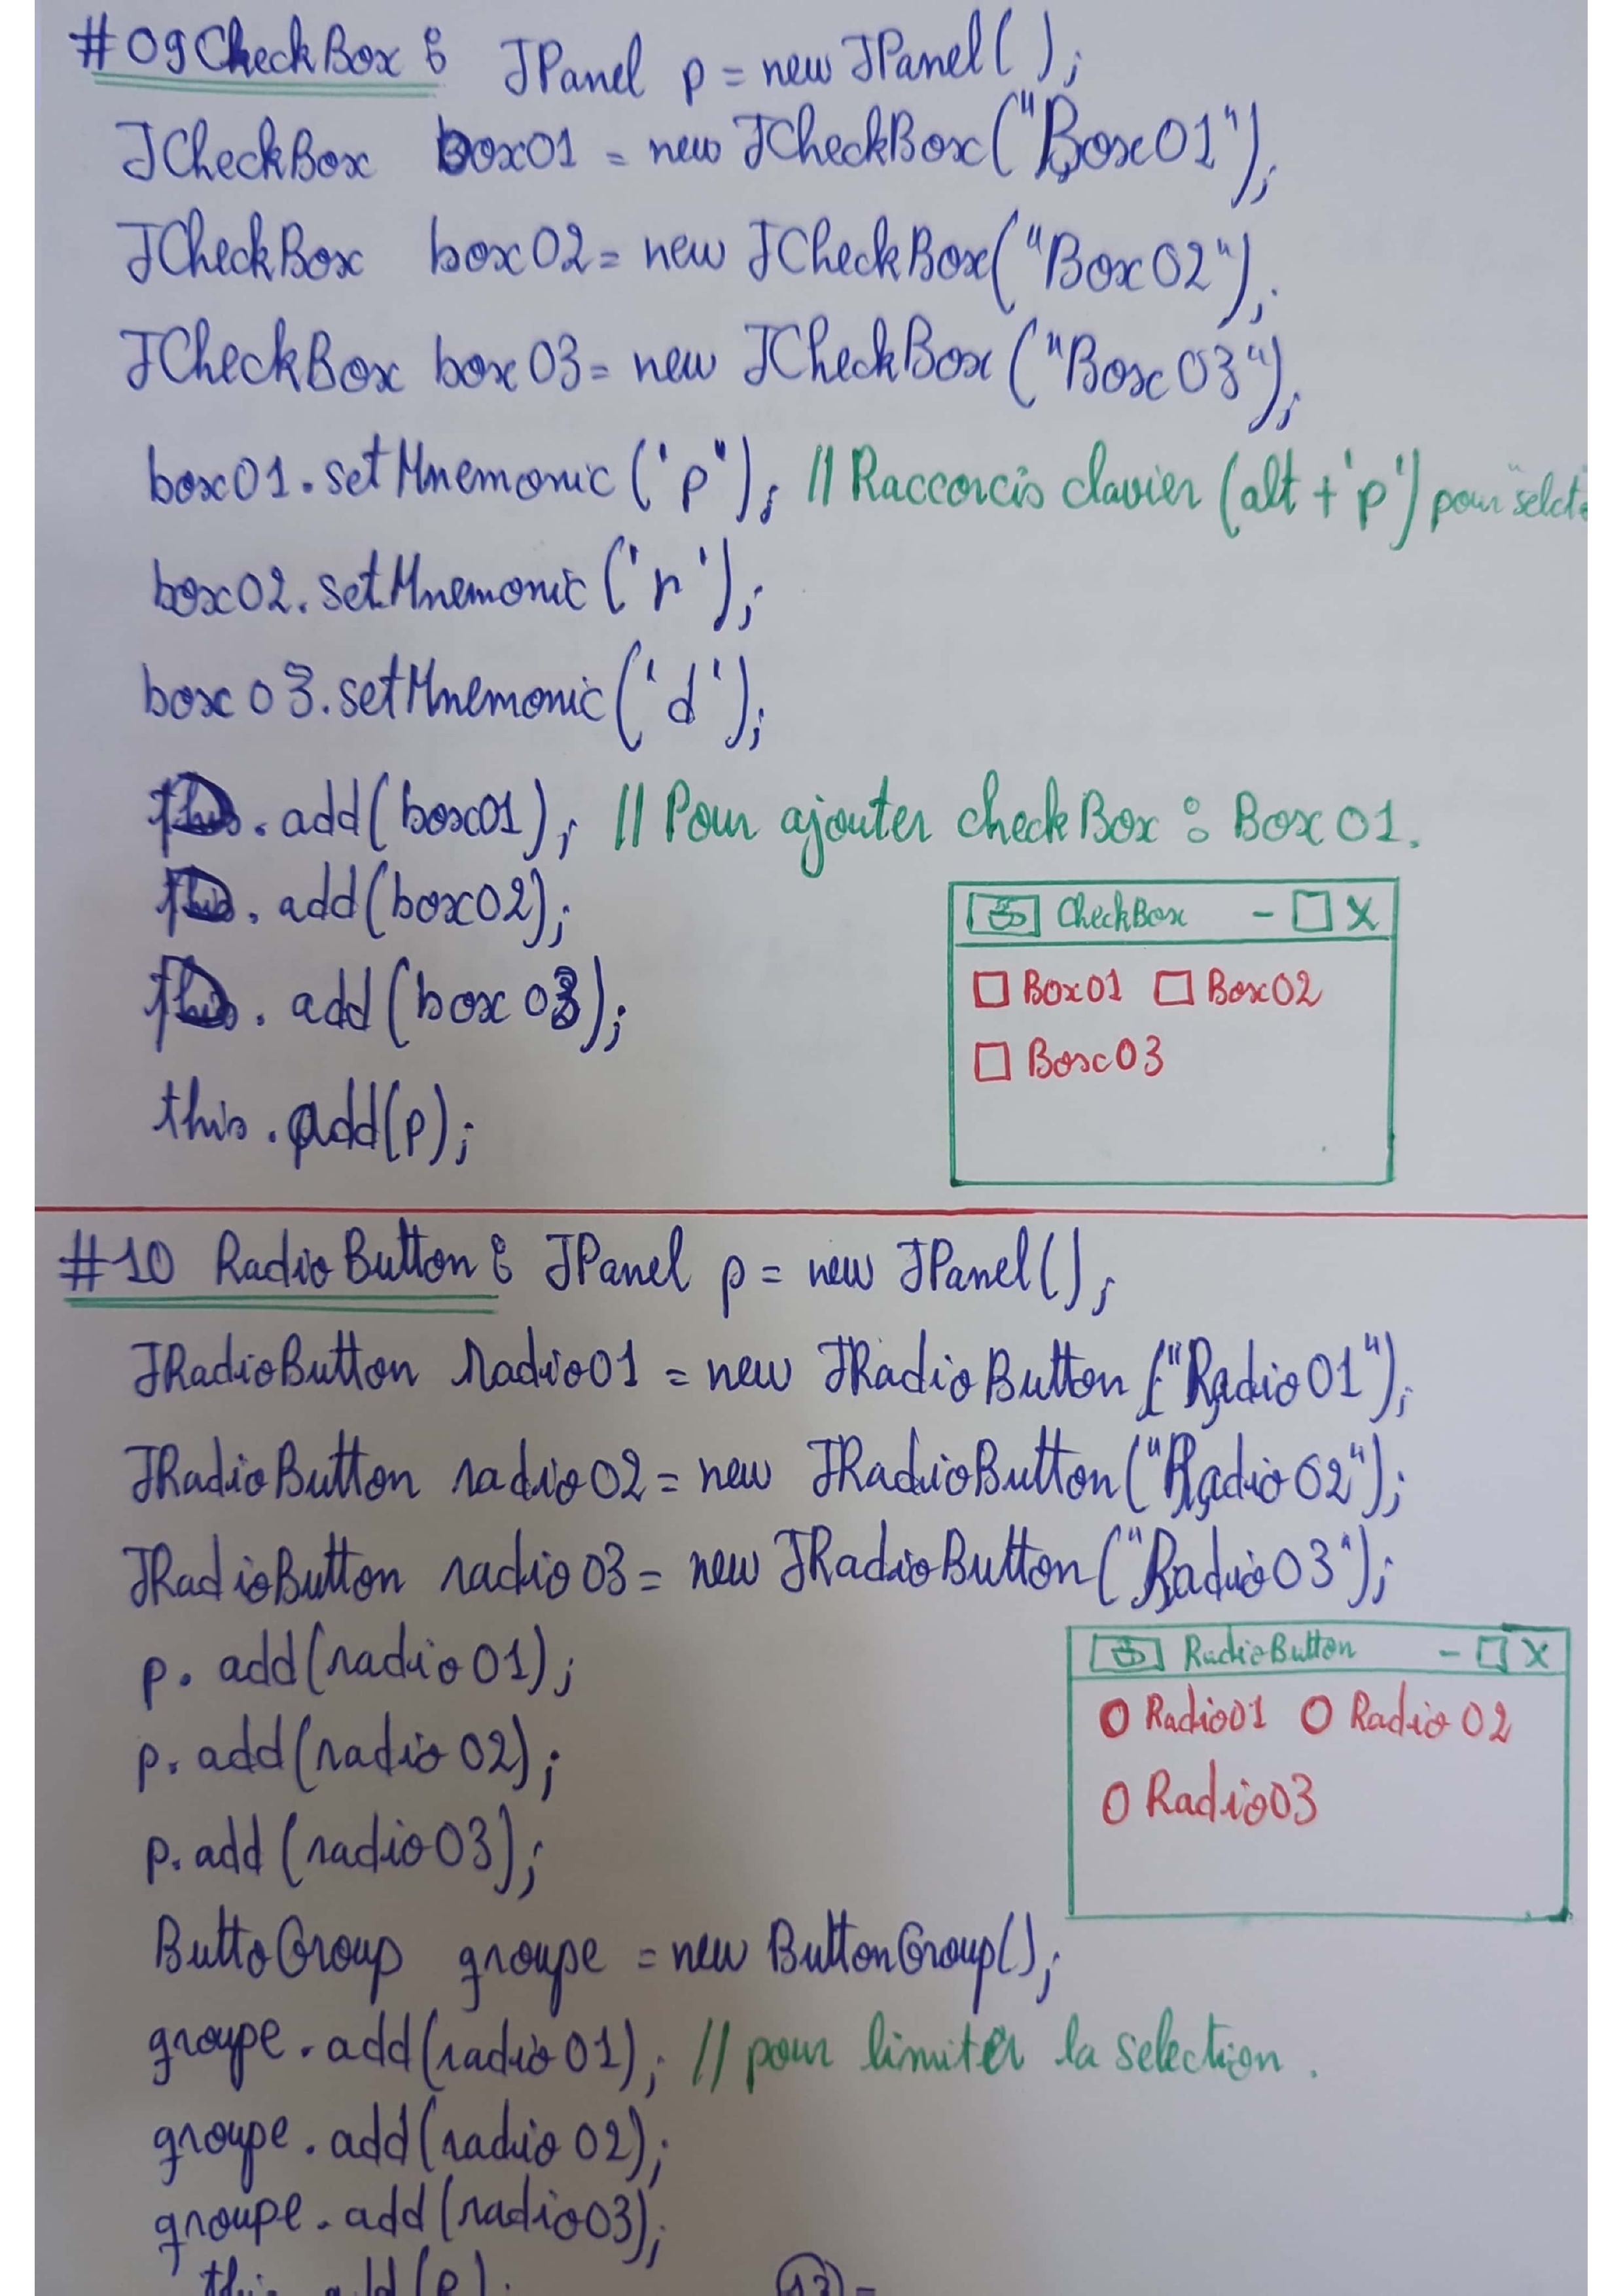 #09 CheckBox : JPanel p = new JPanel();
JCheckBox box01 = new JCheckBox("Box01");
JCheckBox box02 = new JCheckBox("Box02");
JCheckBox box03 = new JCheckBox("Box03");
box01.setMnemonic('p"); // Raccorcis clavier (alt + 'p') pour
box02.setMnemonic('r');
box03.setMnemonic('d');
.add(box01); // Pour ajouter checkBox : Box01.
.add(box02);
.add(box03);
this.add(p);
CheckBox - X
Box01 Box02
Box03
#10 RadioButton : JPanel p = new JPanel();
JRadioButton radio01 = new JRadioButton("Radio01");
JRadioButton radio02 = new JRadioButton("Radio02");
JRadioButton radio03 = new JRadioButton("Radio03");
p.add(radio01);
p.add(radio02);
p.add(radio03);
RadioButton - X
Radio01 Radio02
Radio03
ButtoGroup groupe = new ButtonGroup();
groupe.add(radio01); // pour limiter la selection.
groupe.add(radio02);
groupe.add(radio03);